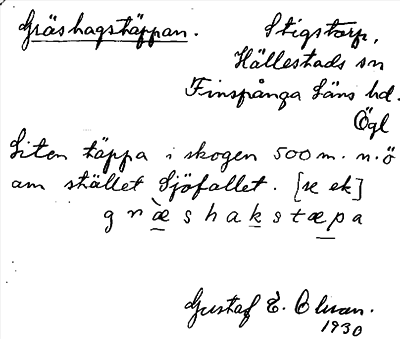 Gräshagstäppan.
Stigstorp,
Hällestads sn
Finspånga läns hd.
Ögl
Liten täppa i skogen 500 m. n.ö
om stället Sjöfallet. [se ek]
g r æ̀ s h a k s t æ p a
Gustaf E. Olsson.
1930